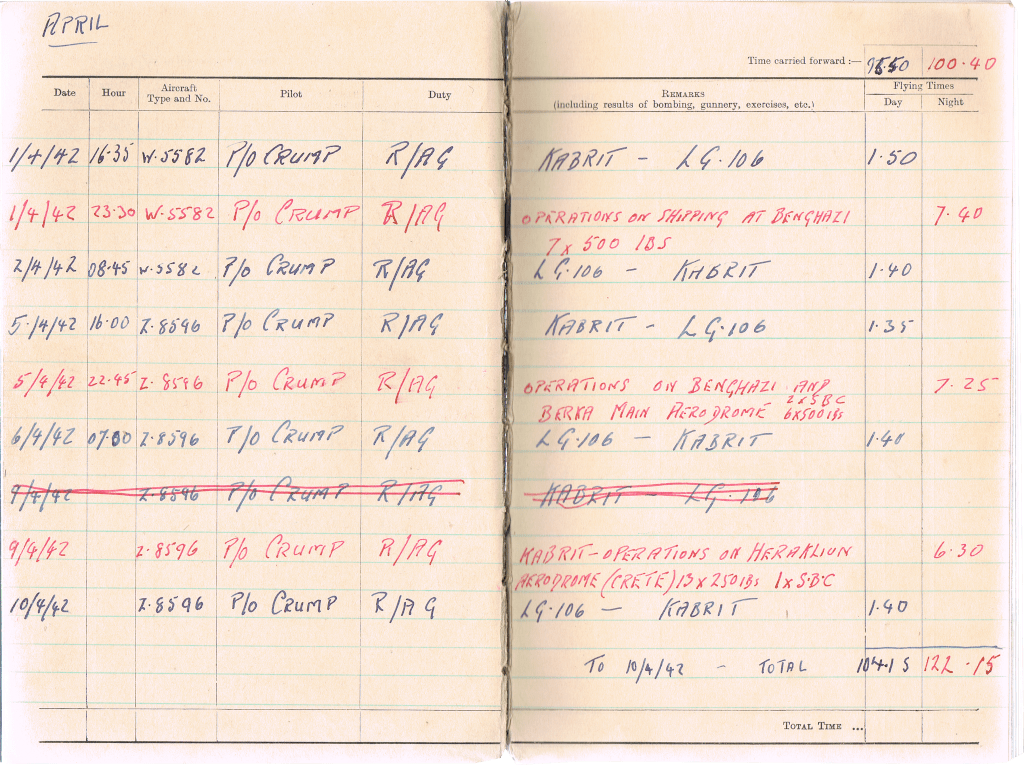 APRIL
Time carried forward :— 95.50 100.40
Date Hour Aircraft Type and No. Pilot Duty REMARKS (including results of bombing, gunnery, exercises, etc.) Flying Times Day Night
1/4/42 16.35 W.5582 P/O CRUMP R/AG KABRIT - LG.106 1.50
1/4/42 23.30 W.5582 P/O CRUMP R/AG OPERATIONS ON SHIPPING AT BENGHAZI 7.40
7 x 500 lBS
2/4/42 08.45 W.5582 P/O CRUMP R/AG LG.106 - KABRIT 1.40
5/4/42 16.00 Z.8596 P/O CRUMP R/AG KABRIT - LG.106 1.35
5/4/42 22.45 Z.8596 P/O CRUMP R/AG OPERATIONS ON BENGHAZI AND 7.25
BERKA MAIN AERODROME 2xSBC 6x500lBs
6/4/42 07.00 Z.8596 P/O CRUMP R/AG LG.106 - KABRIT 1.40
9/4/42 Z.8596 P/O CRUMP R/AG KABRIT - LG.106
9/4/42 Z.8596 P/O CRUMP R/AG KABRIT-OPERATIONS ON HERAKLIUN 6.30
AERODROME (CRETE) 13 x 250lBs 1xS.B.C
10/4/42 Z.8596 P/O CRUMP R/AG LG.106 - KABRIT 1.40
TO 10/4/42 - TOTAL 104.15 122.15
TOTAL TIME ...